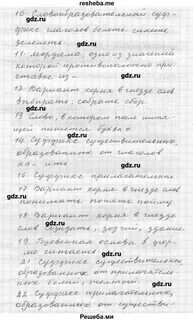 resheba.me
10. Словообразовательный суф-
фикс глаголов сеять, синеть
зеленеть
11. морфема, одно из значений
которой противоположно при-
ставке из-
12 Вариант корня в гнезде слов
впирать, собрать, сбор
13 Слово, в котором поле ши-
пящей пишется буква о
14 Суффикс существительных,
образованных от глаголов
на - ить
16 Суффикс прилагательн
17 Вариант корня в гнезде слов
понимать, понять, пойму
18 Вариант корня в гнезде
слов создать, зодчий, здание
19 Буквенная основа в фор-
ме
21 Суффикс существительн
образованных от прилагатель-
ных белый, желтый
22 Суффикс прилагательных,
образованных от существи-
Решеба.ми
gdz.ru
gdz.ru
gdz.ru
gdz.ru
gdz.ru
gdz.ru